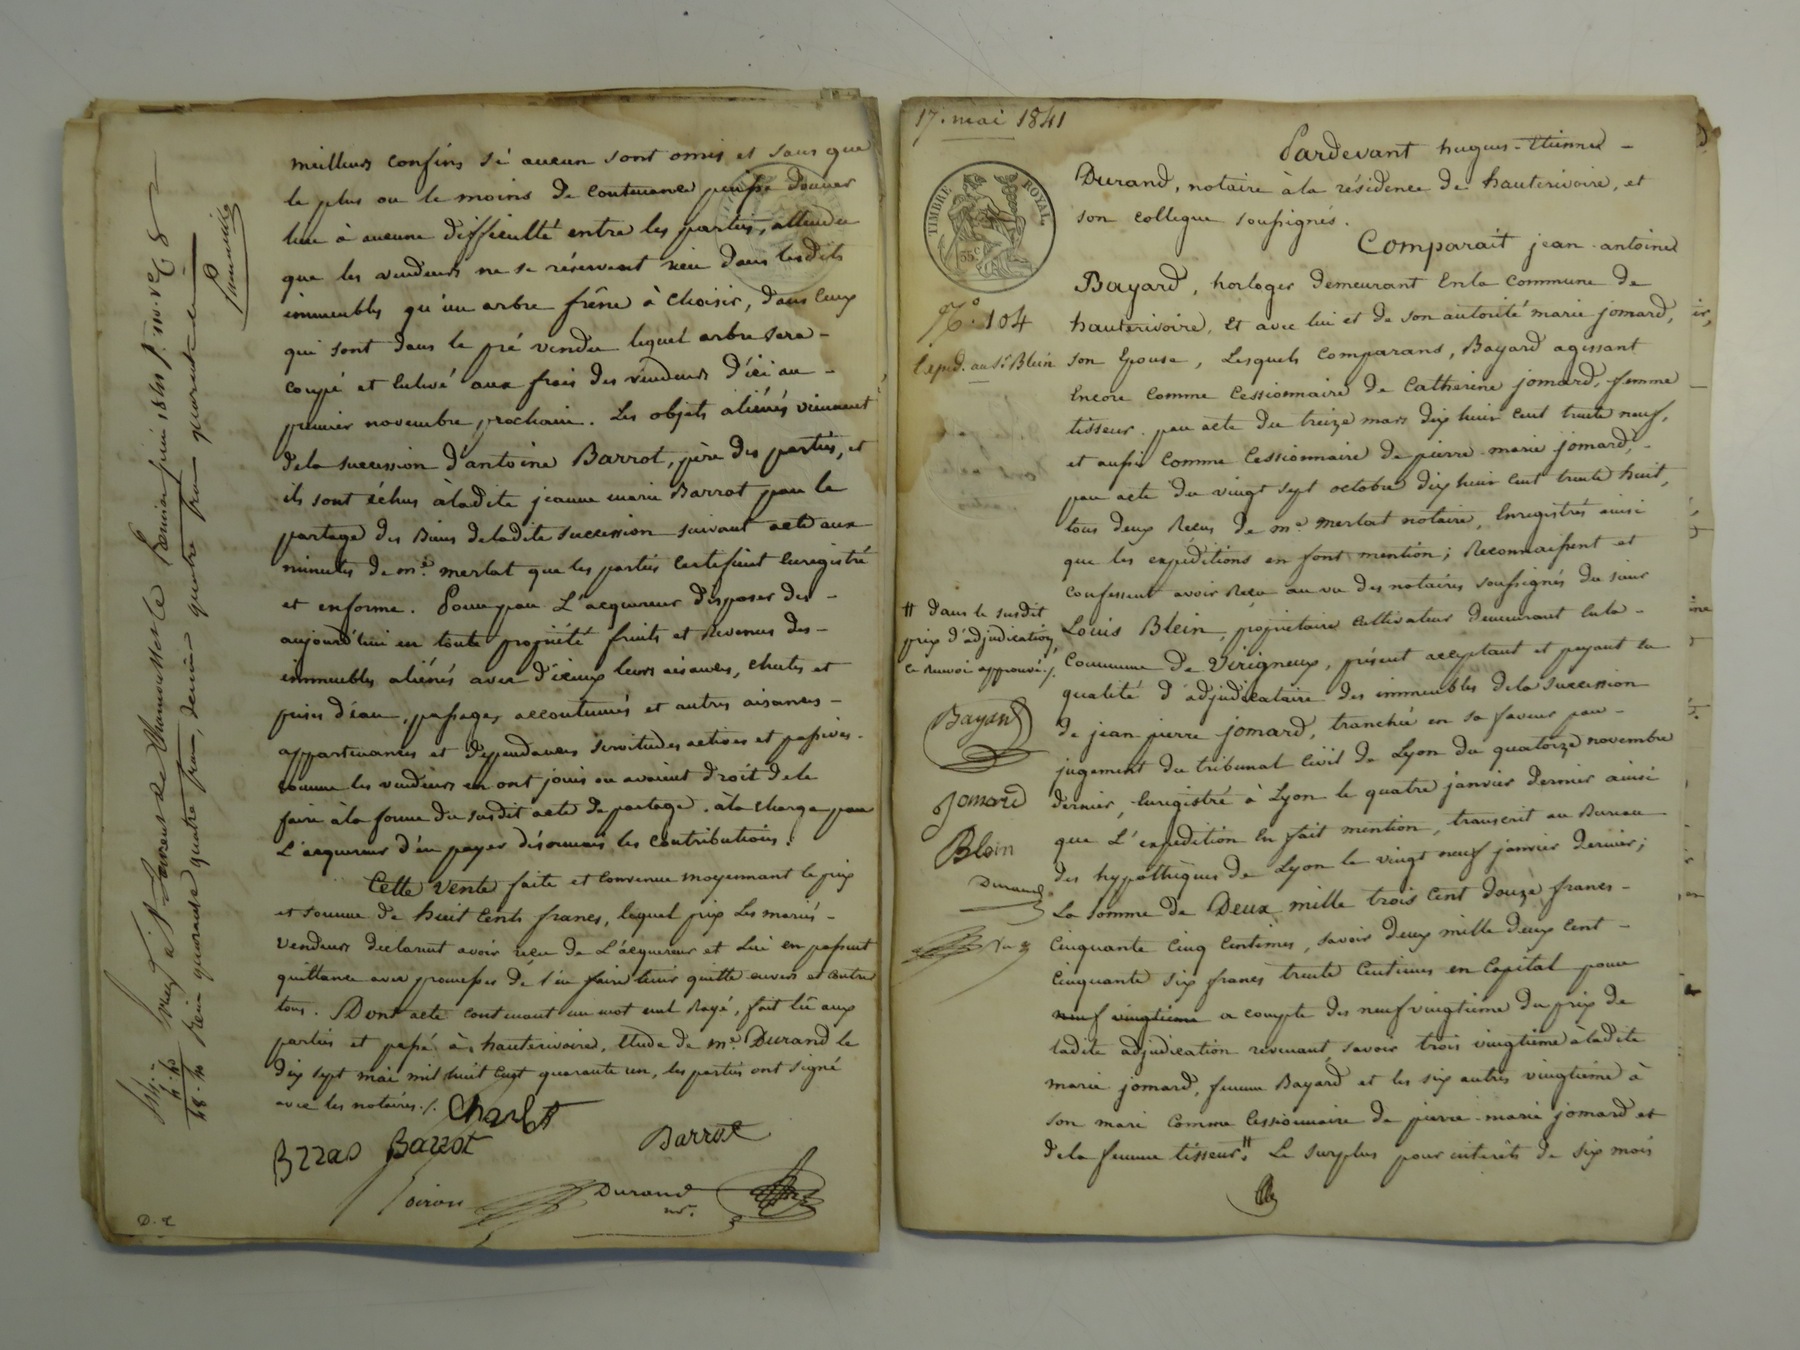 meilleurs confins si aucun sont omis et sans que
le plus ou le moins de contenance puisse donner
lieu à aucune difficulté entre les parties, attendu
que les vendeurs ne se réservent rien dans lesdits
immeubles qu'un arbre frêne à choisir, dans ceux
qui sont dans le pré vendu lequel arbre sera -
coupé et enlevé aux frais des vendeurs d'ici au -
premier novembre prochain. Les objets aliénés viennent
dela succession d'antoine Barrot, père des parties, et
ils sont échus àladite jeanne marie Barrot par le
partage des Biens deladite succession suivant acte aux
minutes de me. merlat que les parties certifient enregistré
et enforme. Pour par L'acquereur disposer dès -
aujourd'hui en toute propriété fruits et Revenus des -
immeubles aliénés avec d'iceux leurs aisances, chutes et
prises d'eau, passages accoutumés et autres aisances -
appartenances et dépendances servitudes actives et passives.
comme les vendeurs en ont joui ou avaient droit dele
faire àla forme du susdit acte de partage. àla charge par
L'acquereur d'en payer désormais les contributions.
Cette vente faite et convenue moyennant le prix
et somme de huit cents francs, lequel prix Les mariés -
vendeurs declarent avoir reçu de L'acquereur et Lui en passent
quittance avec promesses de l'en faire tenir quitte envers et contre
tous. Dont acte contenant un mot nul Rayé, fait lû aux
parties et passé à hauterivoire, Etude de me. Durand le
dix sept mai mil huit cent quarante un, les parties ont signé
avec les notaires ./.
Charlot
Barrot
Barrot
Durand
nre.
17. mai 1841
TIMBRE ROYAL
35c
No. 104
l'exped. au Sr. Blein
Pardevant hugues-Etienne -
Durand, notaire àla résidence de hauterivoire, et
son collegue soussignés.
Comparait jean-antoine
Bayard, horloger demeurant Enla commune de
hauterivoire, Et avec lui et de son autorité marie jomard,
son Epouse, Lesquels comparans, Bayard agissant
Encore comme Cessionnaire de Catherine jomard, femme
tisseur. par acte du treize mars dix huit cent trente neuf,
et aussi comme Cessionnaire de pierre-marie jomard, -
par acte du vingt sept octobre dix huit cent trente huit,
tous deux Reçus de me. merlat notaire, Enregistrés ainsi
que les expéditions en font mention; Reconnaissent et
confessent avoir Reçu au vu des notaires soussignés du sieur
Louis Blein, propriétaire cultivateur demeurant enla -
Commune de Virigneux, présent acceptant et payant en
qualité d'adjudicataire des immeubles dela succession
de jean pierre jomard, tranchée en sa faveur par -
jugement du tribunal Civil de Lyon du quatorze novembre
dernier, Enregistré à Lyon le quatre janvier dernier ainsi
que L'expédition En fait mention, transcrit au Bureau
des hypothèques de Lyon le vingt neuf janvier dernier;
La somme de Deux mille trois Cent douze francs -
Cinquante Cinq Centimes, savoir deux mille deux Cent -
Cinquante six francs trente Centimes en Capital pour
neuf vingtième a compte des neuf vingtième du prix de
ladite adjudication revenant, savoir trois vingtième àladite
marie jomard, femme Bayard et les six autres vingtième à
son mari comme Cessionnaire de pierre-marie jomard et
dela femme tisseur.# Le surplus pour intérêts de six mois
# dans le susdit
prix d'adjudication,
ce renvoi approuvé ./.
Bayard
Jomard
Blein
Durand